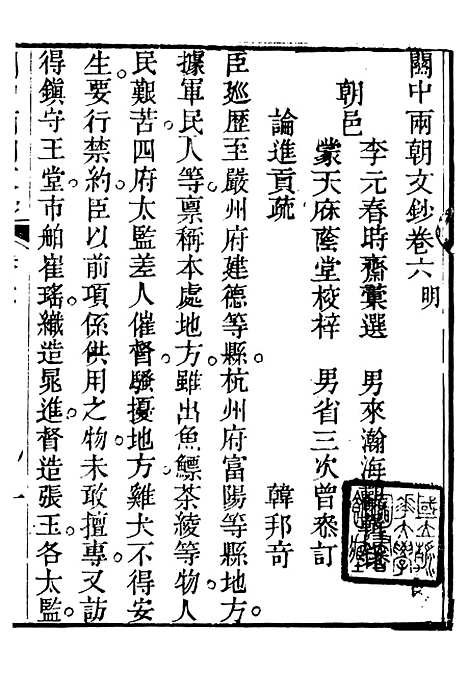 關中兩朝文鈔卷六 明
朝邑 李元春時齋彙選 男來瀚海
蒙天庥蔭堂校梓 男省三次曾叅訂
論進貢疏 韓邦奇
臣廵歷至嚴州府建德等縣杭州府富陽等縣地方。
據軍民人等。稟稱本處地方。雖出魚鰾茶綾等物。人
民艱苦四府太監差人催督騷擾地方雞犬不得安
生。要行禁約。臣以前項係供用之物。未敢擅專。又訪
得鎮守王堂。市舶崔瑤。織造晁進。督造張玉。各太監
一